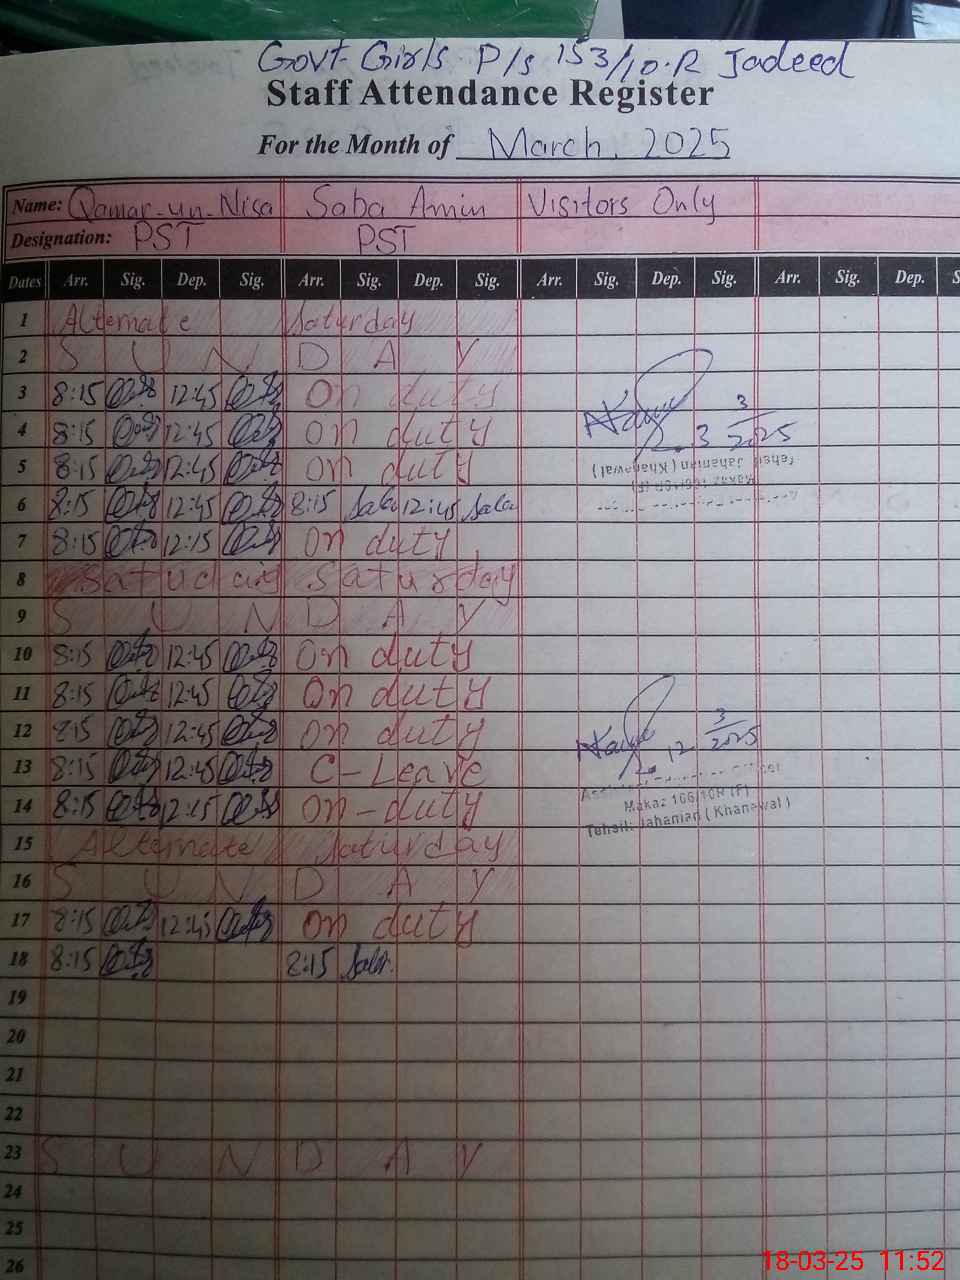 Govt Girls P/s 153/10.R Jadeed
Staff Attendance Register
For the Month of March, 2025
Name: Qamar-un-Nisa Saba Amin Visitors Only
Designation: PST PST
Dates Arr. Sig. Dep. Sig. Arr. Sig. Dep. Sig. Arr. Sig. Dep. Sig. Arr. Sig. Dep. S
1 Alternate Saturday
2 S U N D A Y
3 8:15 12:45 On duty
4 8:15 12:45 on duty 3 3/2025
5 8:15 12:45 on duty Tehsil Jahanian (Khanewal)
6 8:15 12:45 8:15 Saba 12:45 Saba Makaz 166/10R (F)
7 8:15 12:15 On duty
8 Satuday Saturday
9 S U N D A Y
10 8:15 12:45 On duty
11 8:15 12:45 On duty
12 8:15 12:45 on duty 12 3/2025
13 8:15 12:45 C-Leave Officer
14 8:15 12:45 on-duty Makaz 166/10R (F)
Tehsil: Jahanian (Khanewal)
15 Alternate Saturday
16 S U N D A Y
17 8:15 12:45 on duty
18 8:15 8:15 Saba
19
20
21
22
23 S U N D A Y
24
25
26
18-03-25 11:52